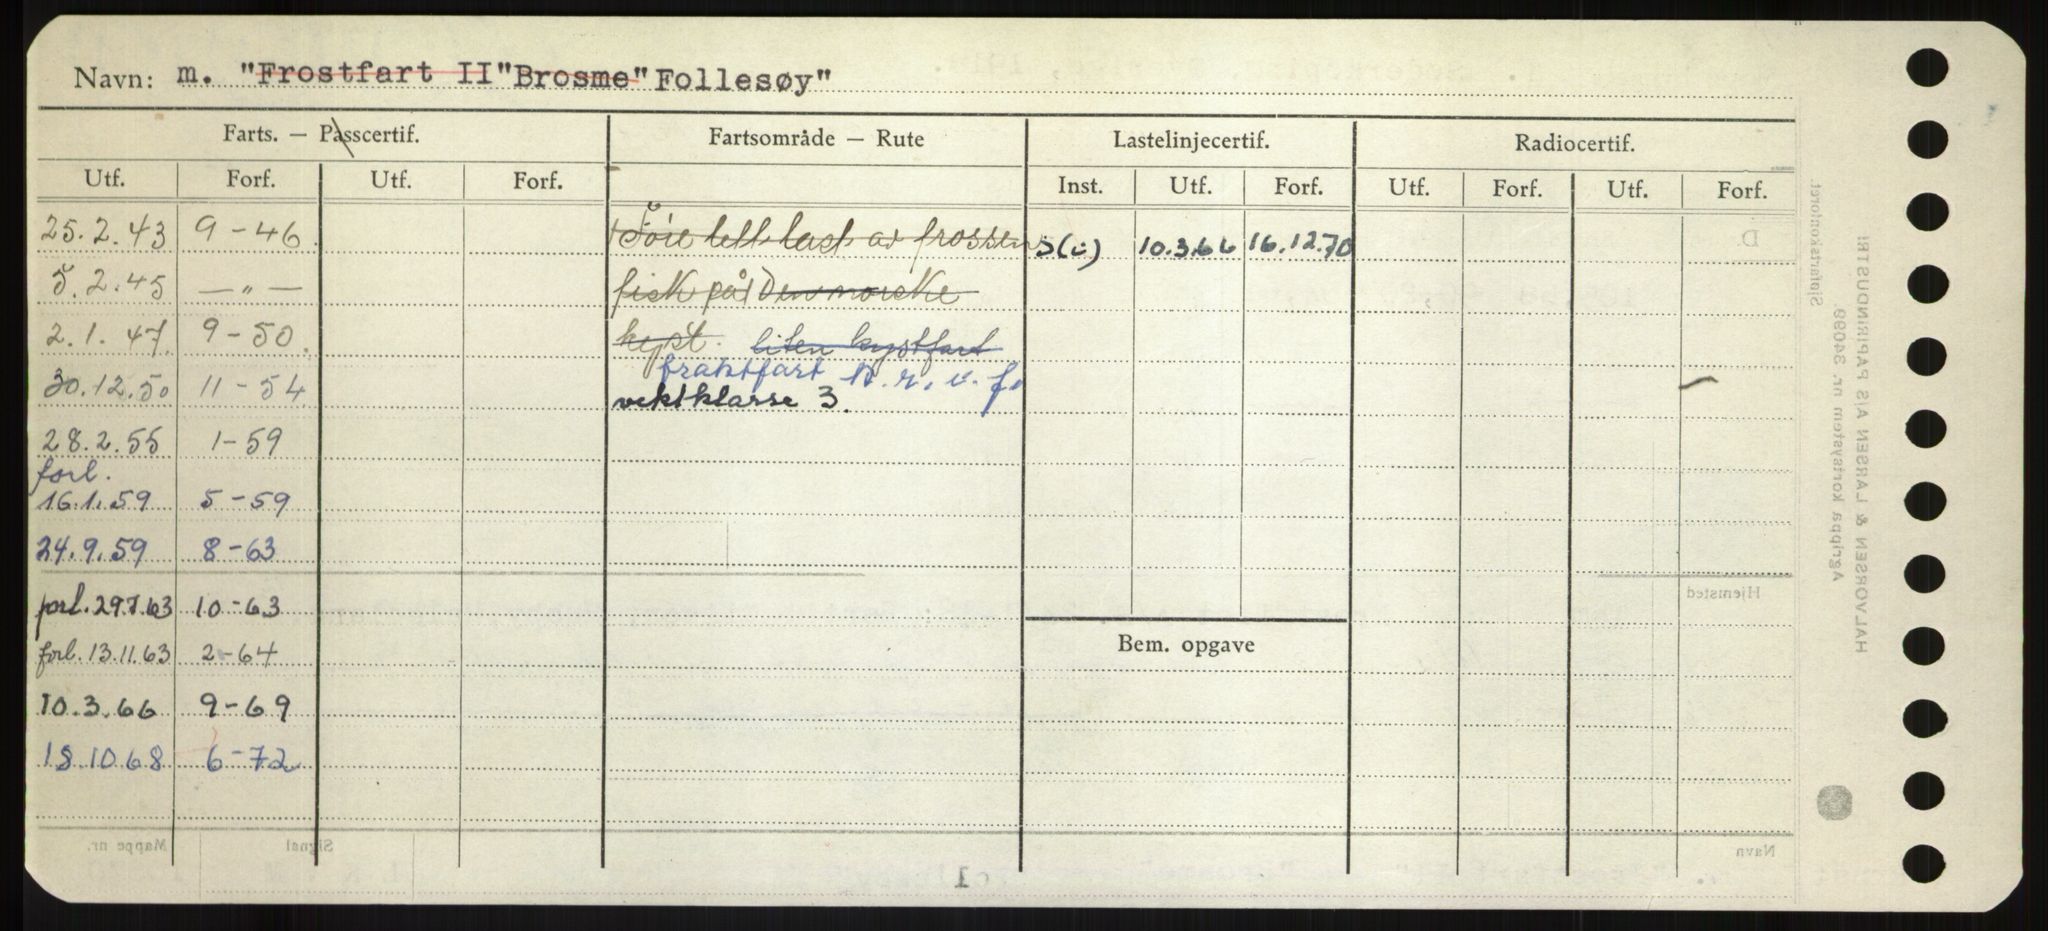 Navn: m. "Frostfart II" "Brosme" Follesøy"
Farts. — Passcertif. Fartsområde — Rute Lastelinjecertif. Radiocertif.
Utf. Forf. Utf. Forf. Inst. Utf. Forf. Utf. Forf. Utf. Forf.
25.2.43 9-46. Före lett last av frossen S(u) 10.3.66 16.12.70
5.2.45 —"— fisk på Den norske
2.1.47. 9-50. kyst. liten kystfart
fraktfart N.r.v.f.
30.12.50 11-54 vektklasse 3.
28.2.55 1-59
forl.
16.1.59 5-59
24.9.59 8-63
forl. 29.7.63 10-63
forl. 13.11.63 2-64
Bem. opgave
10.3.66 9-69
18.10.68 6-72
Mappe nr. Signal Navn
Hjemsted
D
1
Sjøfartskontoret.
Agrippa kortsystem nr. 34099.
HALVORSEN & LARSEN A/S PAPIRINDUSTRI